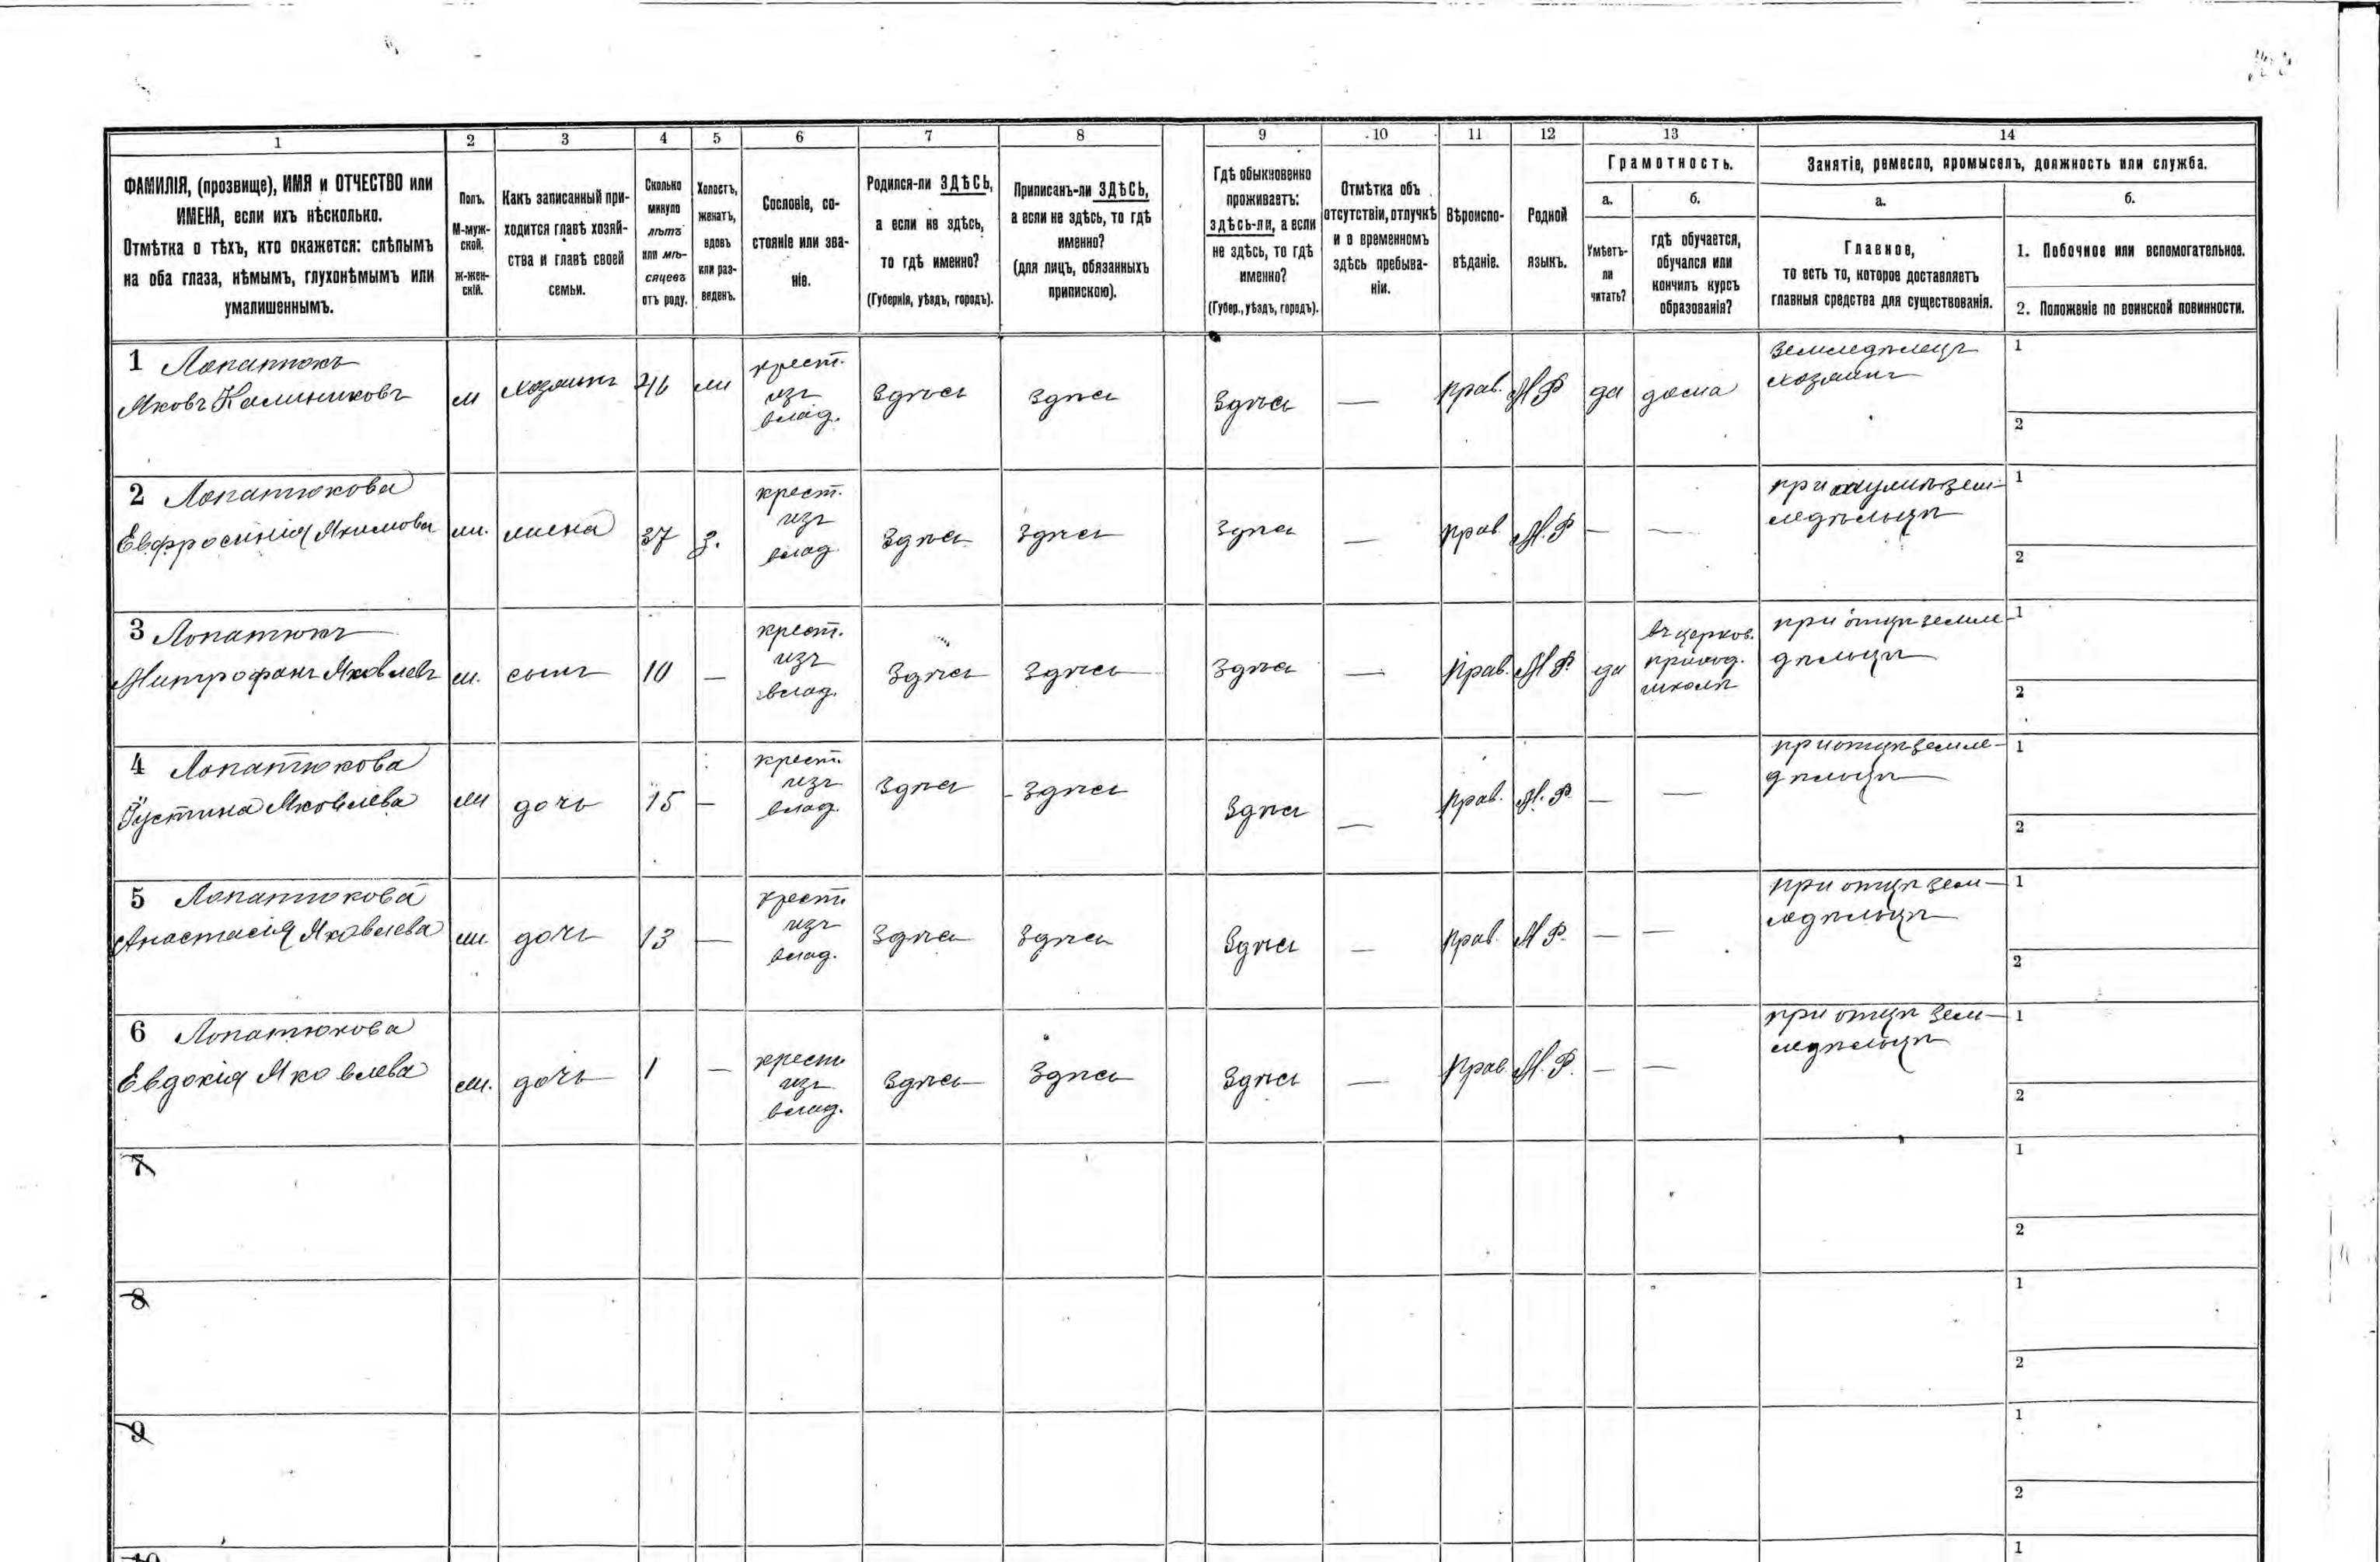 1
2
3
4
5
6
7
8
9
10
11
12
13
14
ФАМИЛІЯ, (прозвище), ИМЯ и ОТЧЕСТВО или
ИМЕНА, если ихъ нѣсколько.
Отмѣтка о тѣхъ, кто окажется: слѣпымъ
на оба глаза, нѣмымъ, глухонѣмымъ или
умалишеннымъ.
Полъ.
М-муж-
ской.
Ж-жен-
скій.
Какъ записанный при-
ходится главѣ хозяй-
ства и главѣ своей
семьи.
Сколько
минуло
лѣтъ
или мѣ-
сяцевъ
отъ роду.
Холостъ,
женатъ,
вдовъ
или раз-
веденъ.
Сословіе, со-
стояніе или зва-
ніе.
Родился-ли ЗДѢСЬ,
а если не здѣсь,
то гдѣ именно?
(Губернія, уѣздъ, городъ).
Приписанъ-ли ЗДѢСЬ,
а если не здѣсь, то гдѣ
именно?
(для лицъ, обязанныхъ
припискою).
Гдѣ обыкновенно
проживаетъ:
здѣсь-ли, а если
не здѣсь, то гдѣ
именно?
(Губер., уѣздъ, городъ).
Отмѣтка объ
отсутствіи, отлучкѣ
и о временномъ
здѣсь пребыва-
ніи.
Вѣроиспо-
вѣданіе.
Родной
языкъ.
Грамотность.
а.
Умѣетъ-
ли
читать?
б.
гдѣ обучается,
обучался или
кончилъ курсъ
образованія?
Занятіе, ремесло, промыселъ, должность или служба.
а.
Главное,
то есть то, которое доставляетъ
главныя средства для существованія.
б.
1. Побочное или вспомогательное.
2. Положеніе по воинской повинности.
1 Лопатюкъ
Яковъ Калиниковъ
м
хозяинъ
46
ж
крест.
изъ
влад.
Здѣсь
Здѣсь
Здѣсь
—
прав.
М Р
да
дома
Земледѣлецъ
хозяинъ
1
2
2 Лопатюкова
Евфросинія Якимова
ж.
жена
37
З.
крест.
изъ
влад
Здѣсь
Здѣсь
Здѣсь
—
прав
М. Р
—
—
при мужѣ зем-
ледѣльцѣ
1
2
3 Лопатюкъ
Митрофанъ Яковлевъ
м.
сынъ
10
—
крест.
изъ
влад.
Здѣсь
Здѣсь
Здѣсь
—
Прав.
М Р.
да
въ церков.
приход.
школѣ
при отцѣ земле-
дѣльцѣ
1
2
4 Лопатюкова
Іустина Яковлева
ж
дочь
15
—
крест.
изъ
влад.
Здѣсь
Здѣсь
Здѣсь
—
прав.
М. Р.
—
—
при отцѣ земле-
дѣльцѣ
1
2
5 Лопатюкова
Анастасія Яковлева
ж
дочь
13
—
крест.
изъ
влад.
Здѣсь
Здѣсь
Здѣсь
—
прав.
М Р.
—
—
при отцѣ зем-
ледѣльцѣ
1
2
6 Лопатюкова
Евдокія Яковлева
ж.
дочь
1
—
крест
изъ
влад.
Здѣсь
Здѣсь
Здѣсь
—
прав
М. Р.
—
—
при отцѣ зем-
ледѣльцѣ
1
2
7
1
2
8
1
2
9
1
2
10
1